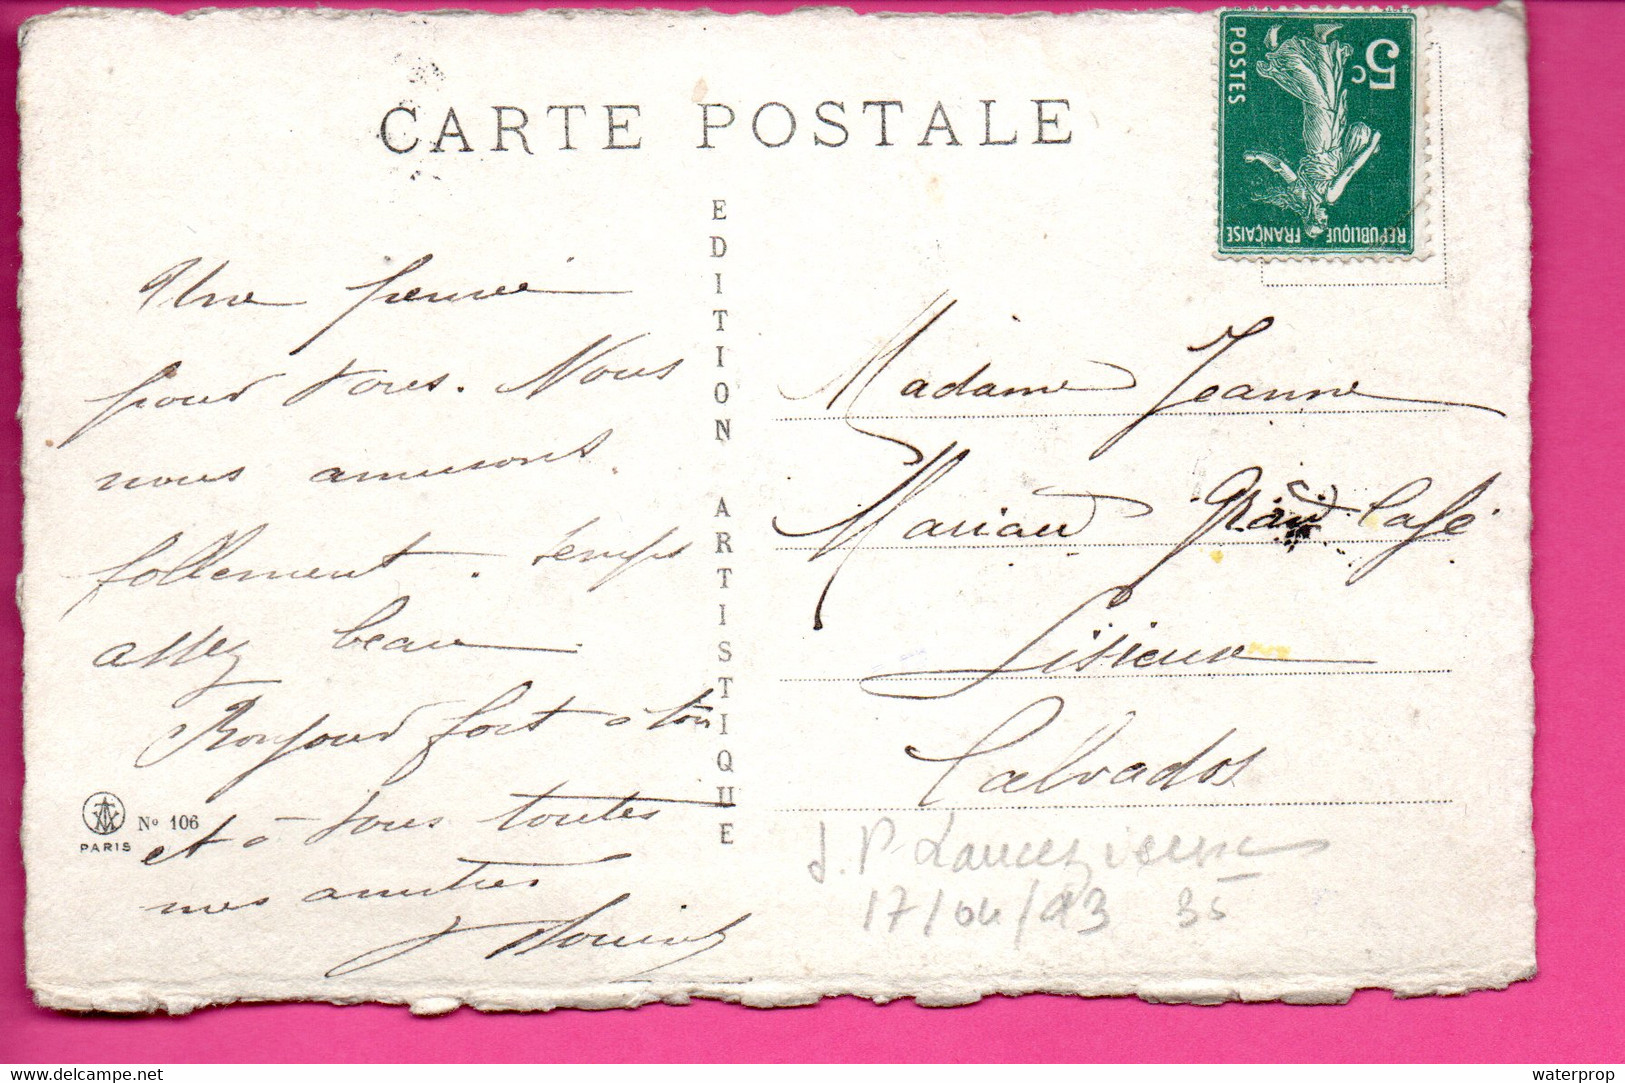 CARTE POSTALE
5c
POSTES
REPUBLIQUE FRANÇAISE
EDITION ARTISTIQUE
Une pensée
pour tous. Nous
nous amusons
follement. temps
assez beau
Bonjour fort à ton
et à tous toutes
mes amitiés
Madame Jeanne
Mariaud Grand Café
Lisieux
Calvados
Nº 106
PARIS
J. P.
17/04/93 35
www.delcampe.net
waterprop